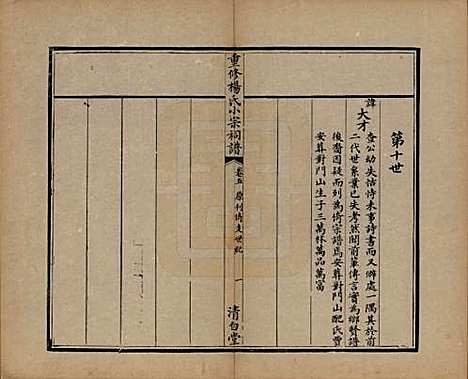 第十世
諱大才
查公幼失怙恃未事詩書而又僻處一隅其於前
二代世系業已失考然聞前輩傳言實為鄉賢譜
後裔因疑而列為倚宗譜為安葬對門山配氏曹
安葬對門山生子三萬林萬品萬富
重修楊氏小宗祠譜
卷五 原刊倚支世紀
一
清白堂